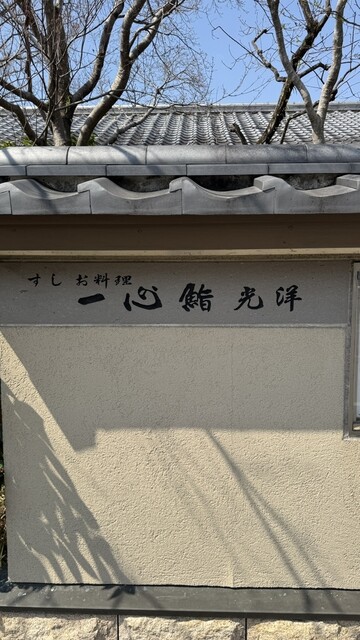 すし お料理
一心鮨 光洋